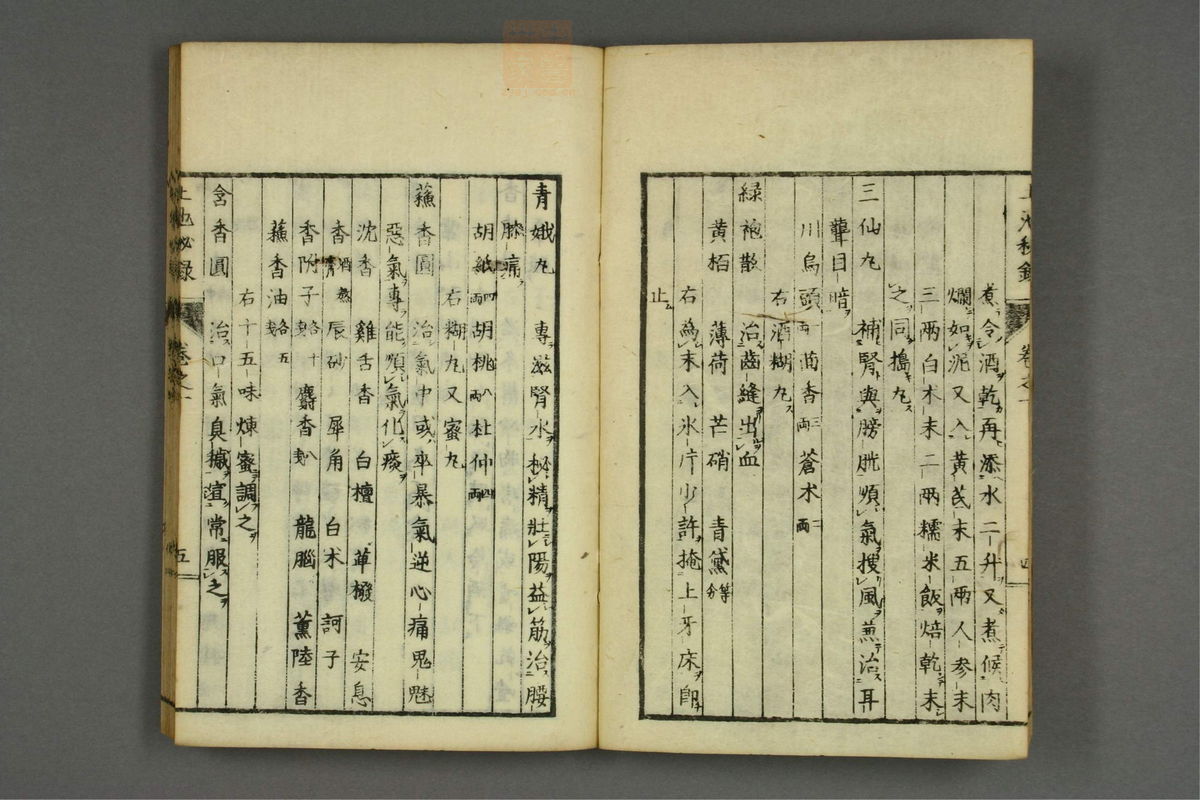 煮令酒乾再添水二升又煮候肉
爛如泥又入黄芪末五兩人参末
三兩白术末二兩糯米飯焙乾末
之同搗丸
三仙丸　補腎與膀胱順氣搜風兼治耳
聾目暗
川烏頭一兩　茴香三兩　蒼术二兩
右酒糊丸
緑袍散　治齒縫出血
黄栢　薄荷　芒硝　青黛等分
右為末入氷片少許掩上牙床即
止
上池秘録　卷之一　四
青娥丸　專滋腎水極精壯陽益筋治腰
膝痛
胡紙四兩　胡桃八兩　杜仲四兩
右糊丸又蜜丸
蘓香圓　治氣中或卒暴氣逆心痛鬼魅
惡氣專能順氣化痰
沈香　雞舌香　白檀　蓽撥　安息
香酒熬膏　辰砂　犀角　白术　訶子
香附子各十　麝香八　龍腦　薫陸香
蘓香油各五
右十五味煉蜜調之
含香圓　治口氣臭穢宜常服之
上池秘録　卷之一　五